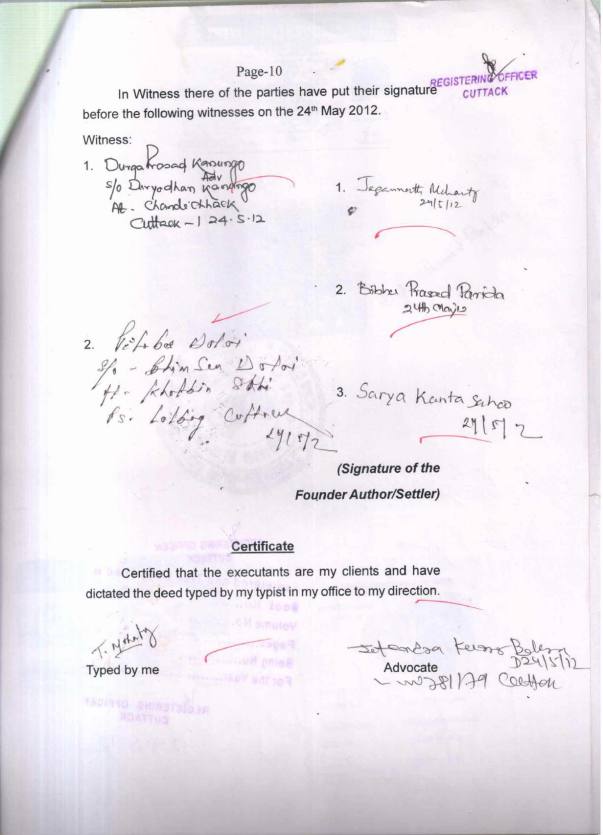 Page-10
REGISTERING OFFICER
CUTTACK
In Witness there of the parties have put their signature
before the following witnesses on the 24th May 2012.
Witness:
1. Durga Prosad Kanungo
Adv
S/o Duryodhan Kanungo
At - Chandichhack
Cuttack - 1 24.5.12
1. Jagannath Mohanty
24/5/12
2. Bibhu Prasad Parida
24th May 12
2. Dolai
S/o - Bhim Sen Dolai
Ps. Lalbag Cuttack
24/5/12
3. Sarya Kanta Sahoo
24/5/12
(Signature of the
Founder Author/Settler)
Certificate
Certified that the executants are my clients and have
dictated the deed typed by my typist in my office to my direction.
T. Mohanty
Typed by me
Advocate
24/5/12
REGISTERING OFFICER
CUTTACK
Book No.
Volume No.
Pages
Being No.
For the Year
REGISTERING OFFICER
CUTTACK